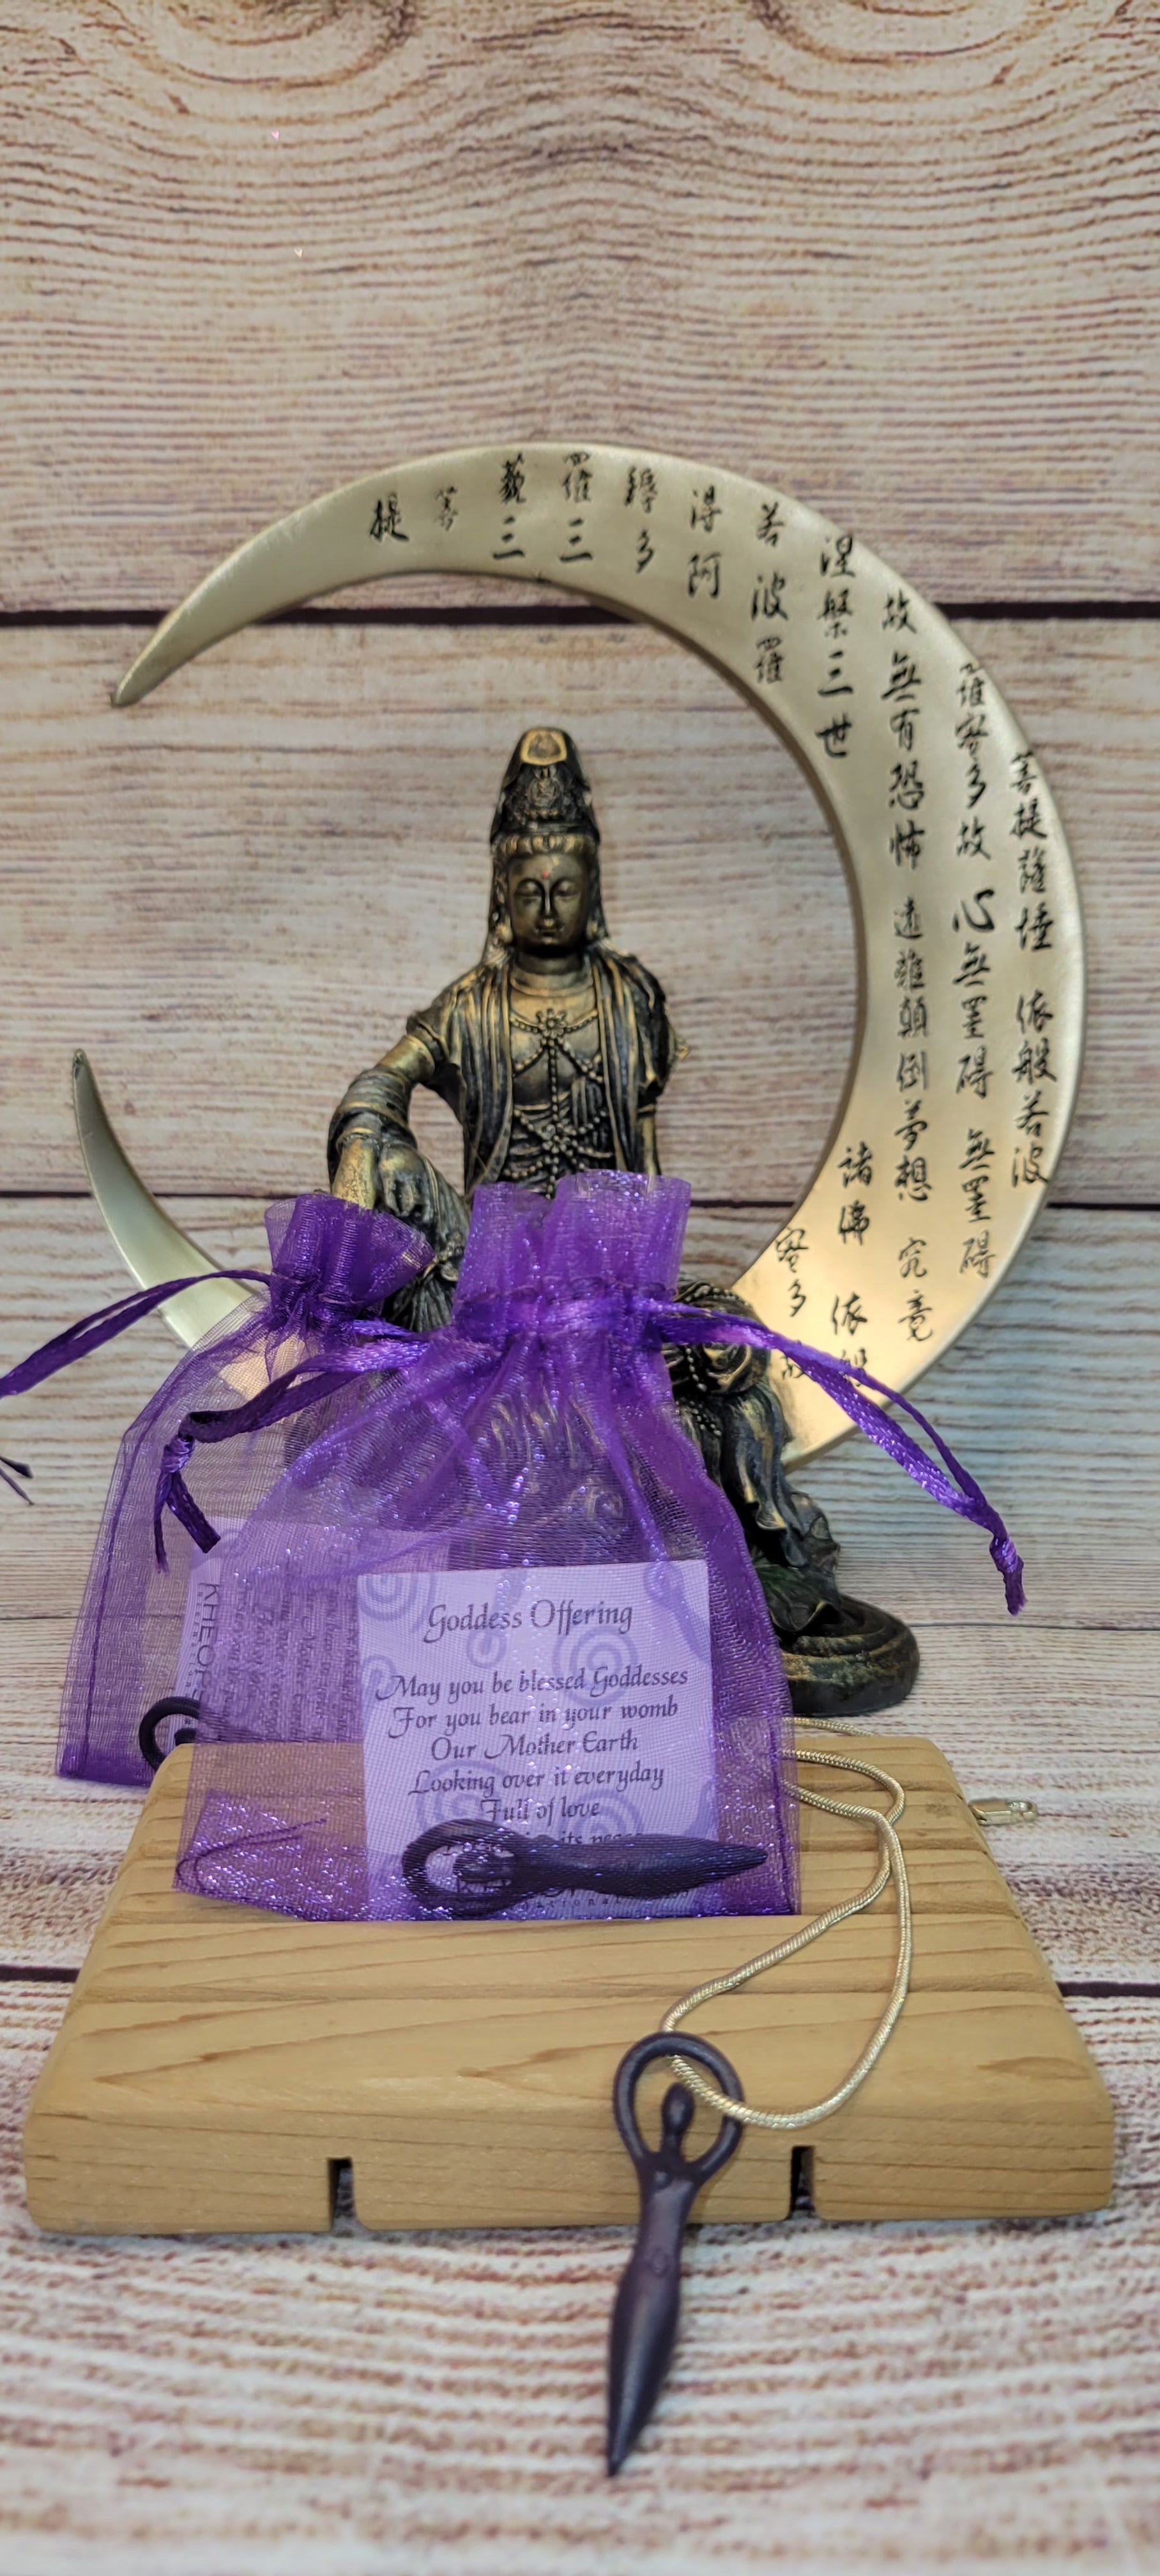 菩提薩埵 依般若波
羅蜜多故 心無罣礙 無罣礙
故 無有恐怖 遠離顛倒夢想 究竟
涅槃三世
諸佛 依般
若波羅
蜜多故
得阿
耨多
羅三
藐三
菩
提
Goddess Offering
May you be blessed Goddesses
For you bear in your womb
Our Mother Earth
Looking over it everyday
Full of love
its
KHEOPS